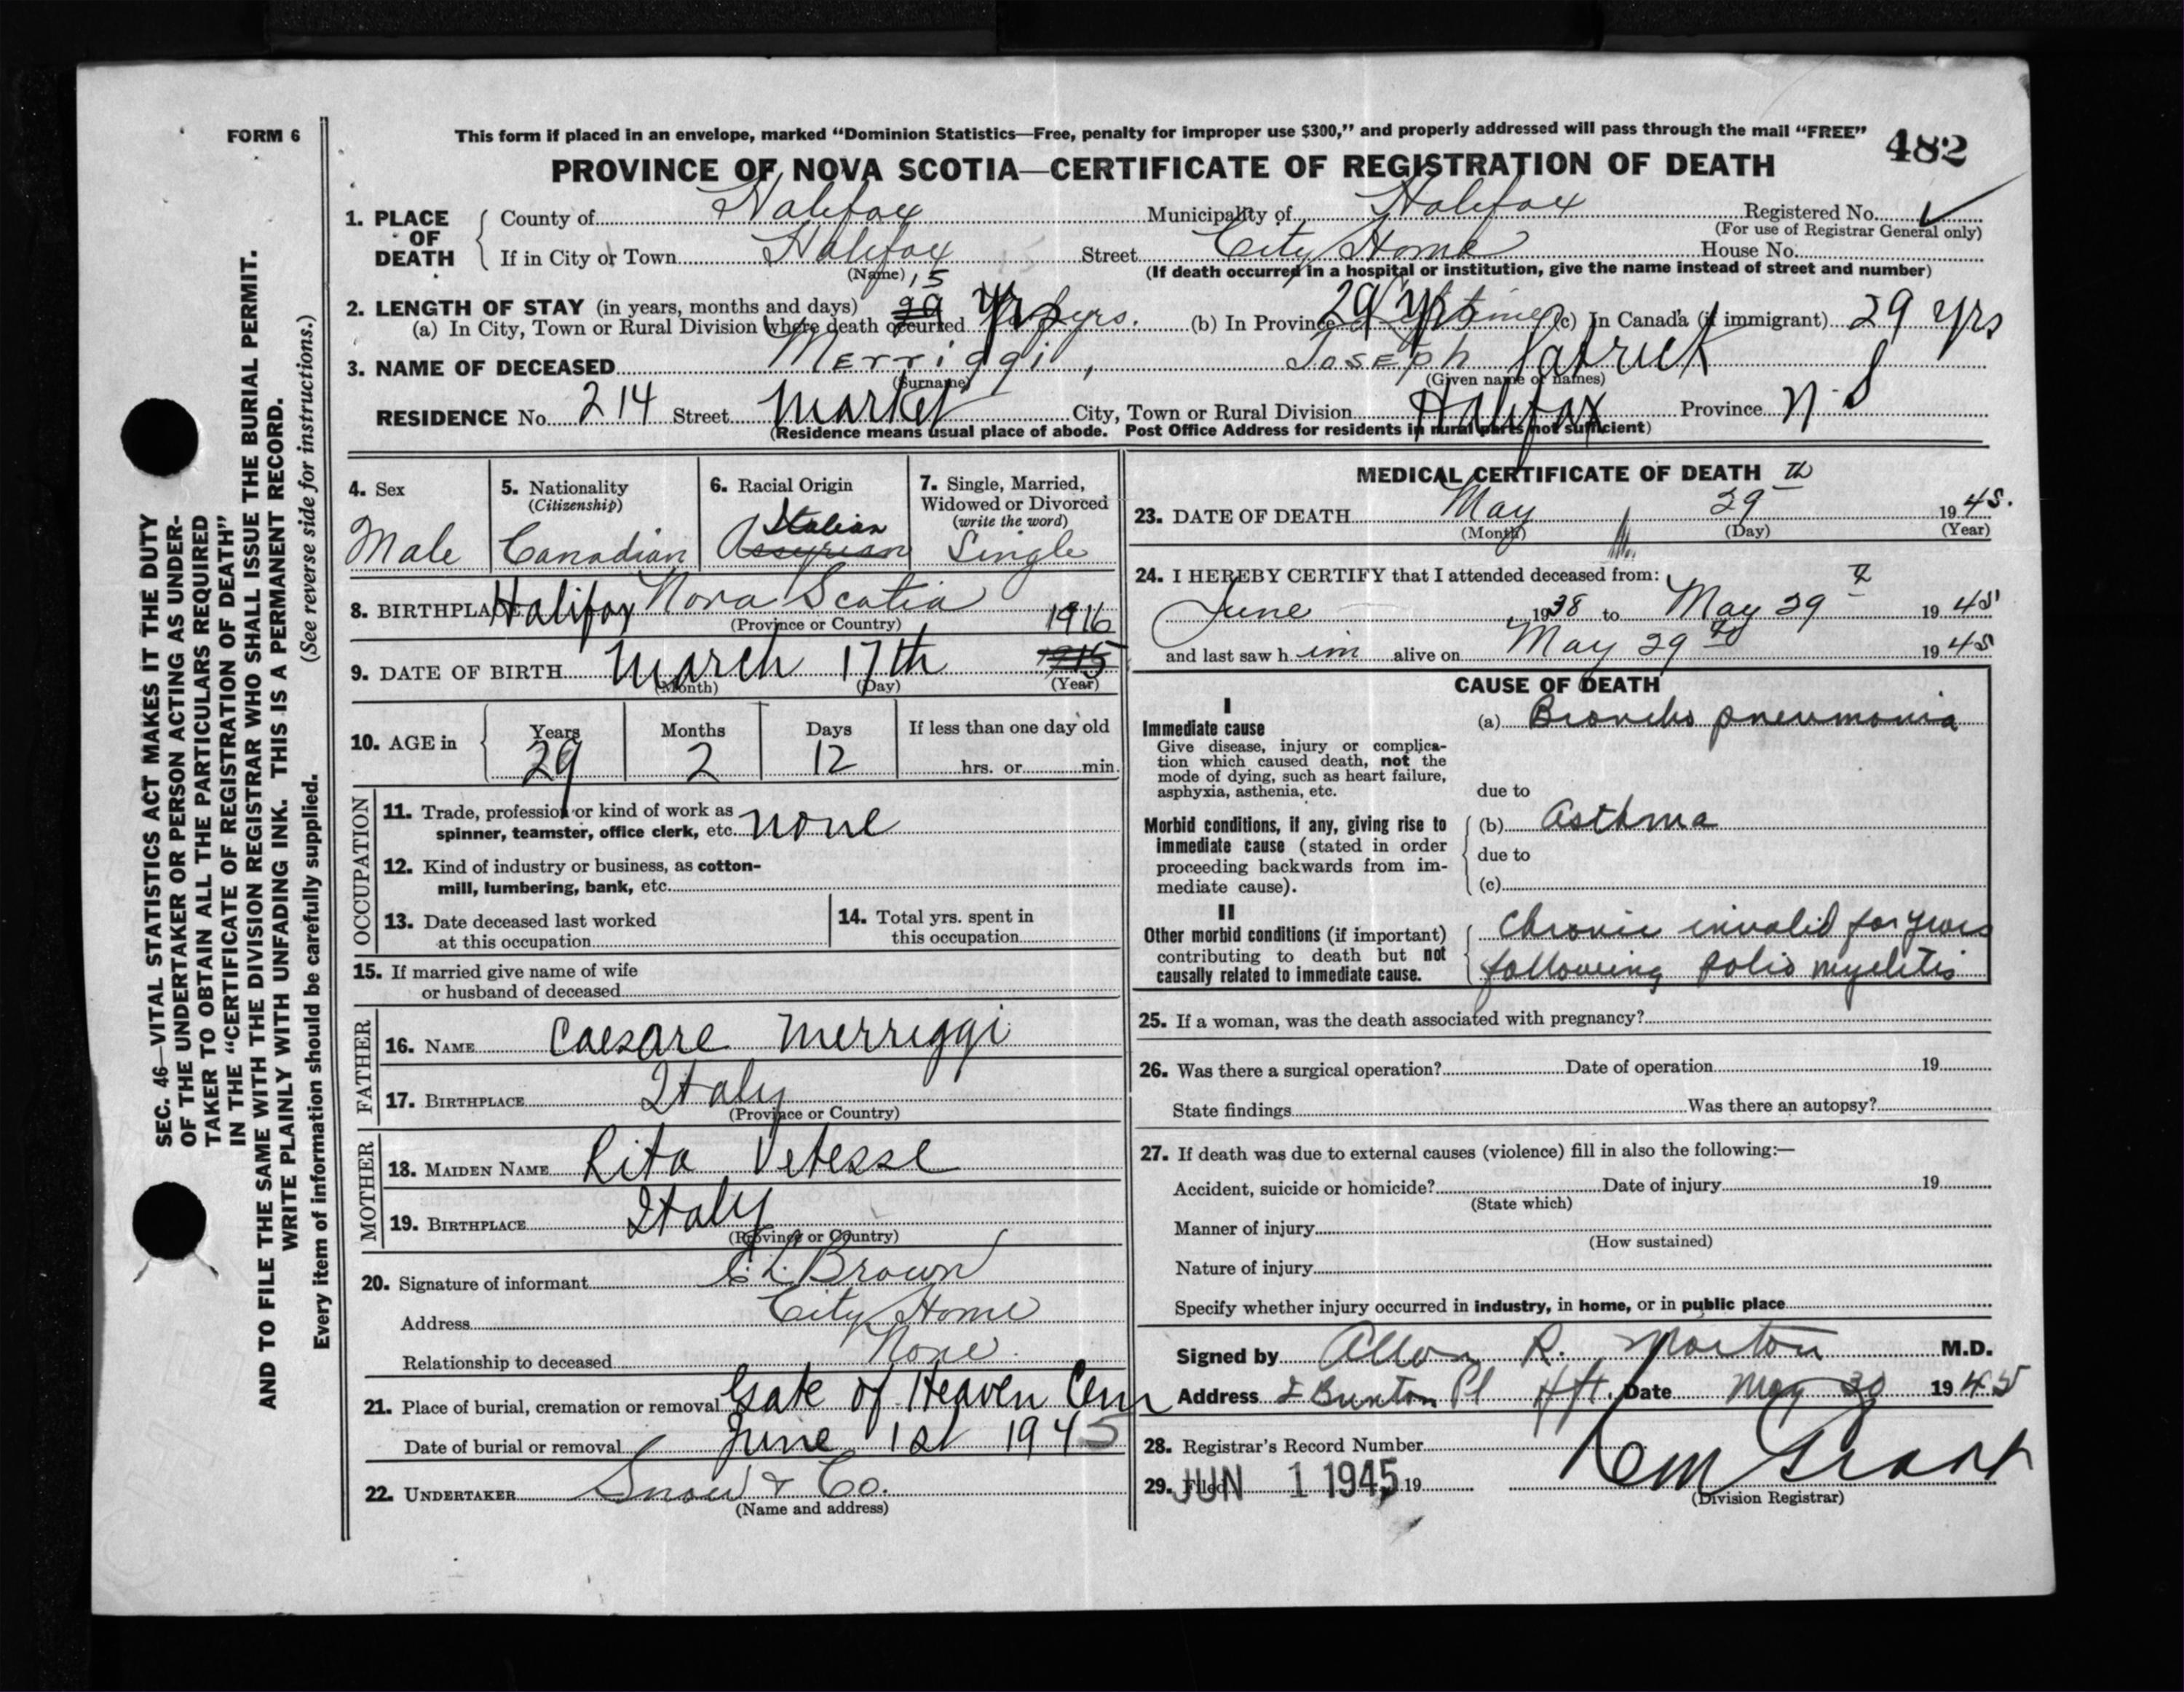 FORM 6
This form if placed in an envelope, marked “Dominion Statistics—Free, penalty for improper use $300,” and properly addressed will pass through the mail “FREE”
482
PROVINCE OF NOVA SCOTIA—CERTIFICATE OF REGISTRATION OF DEATH
1. PLACE OF DEATH
County of Halifax Municipality of Halifax Registered No.
(For use of Registrar General only)
If in City or Town Halifax Street City Home House No.
(Name) (If death occurred in a hospital or institution, give the name instead of street and number)
15
2. LENGTH OF STAY (in years, months and days)
(a) In City, Town or Rural Division where death occurred 29 yrs. (b) In Province 29 yrs (c) In Canada (if immigrant) 29 yrs
3. NAME OF DECEASED Merriggi, Joseph Patrick
(Surname) (Given name or names)
RESIDENCE No. 214 Street Market City, Town or Rural Division Halifax Province N S
(Residence means usual place of abode. Post Office Address for residents in rural parts not sufficient)
4. Sex
Male
5. Nationality
(Citizenship)
Canadian
6. Racial Origin
Italian
Assyrian
7. Single, Married,
Widowed or Divorced
(write the word)
Single
8. BIRTHPLACE Halifax Nova Scotia
(Province or Country)
1916
9. DATE OF BIRTH March 17th 1915
(Month) (Day) (Year)
10. AGE in
Years Months Days If less than one day old
29 2 12 hrs. or min.
OCCUPATION
11. Trade, profession or kind of work as
spinner, teamster, office clerk, etc. none
12. Kind of industry or business, as cotton-
mill, lumbering, bank, etc.
13. Date deceased last worked
at this occupation
14. Total yrs. spent in
this occupation
15. If married give name of wife
or husband of deceased
FATHER
16. NAME Caesare Merriggi
17. BIRTHPLACE Italy
(Province or Country)
MOTHER
18. MAIDEN NAME Rita Vetesse
19. BIRTHPLACE Italy
(Province or Country)
20. Signature of informant C. L. Brown
Address City Home
Relationship to deceased None.
21. Place of burial, cremation or removal Gate of Heaven Cem
Date of burial or removal June 1st 1945
22. UNDERTAKER Snow & Co.
(Name and address)
MEDICAL CERTIFICATE OF DEATH
23. DATE OF DEATH May 29th 1945.
(Month) (Day) (Year)
24. I HEREBY CERTIFY that I attended deceased from:
June 1938 to May 29th 1945
and last saw him alive on May 29th 1945
CAUSE OF DEATH
I
Immediate cause
Give disease, injury or complica-
tion which caused death, not the
mode of dying, such as heart failure,
asphyxia, asthenia, etc.
(a) Broncho pneumonia
due to
Morbid conditions, if any, giving rise to
immediate cause (stated in order
proceeding backwards from im-
mediate cause).
(b) Asthma
due to
(c)
II
Other morbid conditions (if important)
contributing to death but not
causally related to immediate cause.
Chronic invalid for years
following polio myelitis
25. If a woman, was the death associated with pregnancy?
26. Was there a surgical operation? Date of operation 19
State findings Was there an autopsy?
27. If death was due to external causes (violence) fill in also the following:—
Accident, suicide or homicide? Date of injury 19
(State which)
Manner of injury
(How sustained)
Nature of injury
Specify whether injury occurred in industry, in home, or in public place
Signed by Allan R. Morton M.D.
Address Brunton Pl Hfx. Date May 30 1945
28. Registrar's Record Number
29. Filed JUN 1 1945 19
(Division Registrar)
SEC. 46—VITAL STATISTICS ACT MAKES IT THE DUTY
OF THE UNDERTAKER OR PERSON ACTING AS UNDER-
TAKER TO OBTAIN ALL THE PARTICULARS REQUIRED
IN THE “CERTIFICATE OF REGISTRATION OF DEATH”
AND TO FILE THE SAME WITH THE DIVISION REGISTRAR WHO SHALL ISSUE THE BURIAL PERMIT.
WRITE PLAINLY WITH UNFADING INK. THIS IS A PERMANENT RECORD.
Every item of information should be carefully supplied. (See reverse side for instructions.)